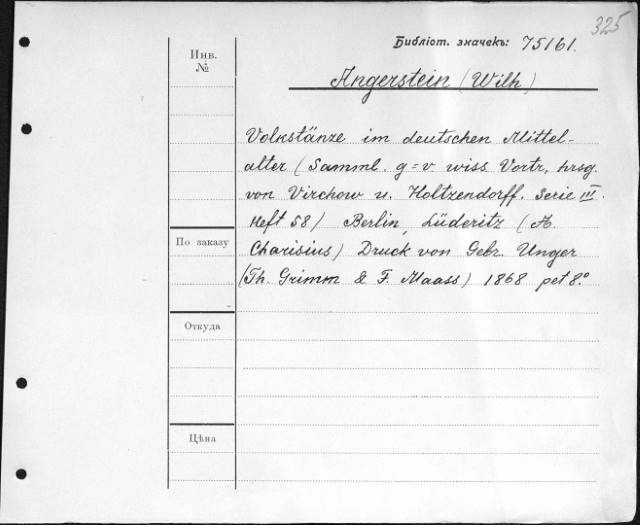 325
Библіот. значекъ: 75161.
Инв.
№
Angerstein (Wilh)
Volkstänze im deutschen Mittel-
alter (Samml. g=v wiss. Vortr, hrsg.
von Virchow u. Holtzendorff. Serie III.
Heft 58) Berlin, Lüderitz (A.
По заказу
Charisius) Druck von Gebr. Unger
(Th. Grimm & F. Maass) 1868 pet 8.º
Откуда
Цѣна